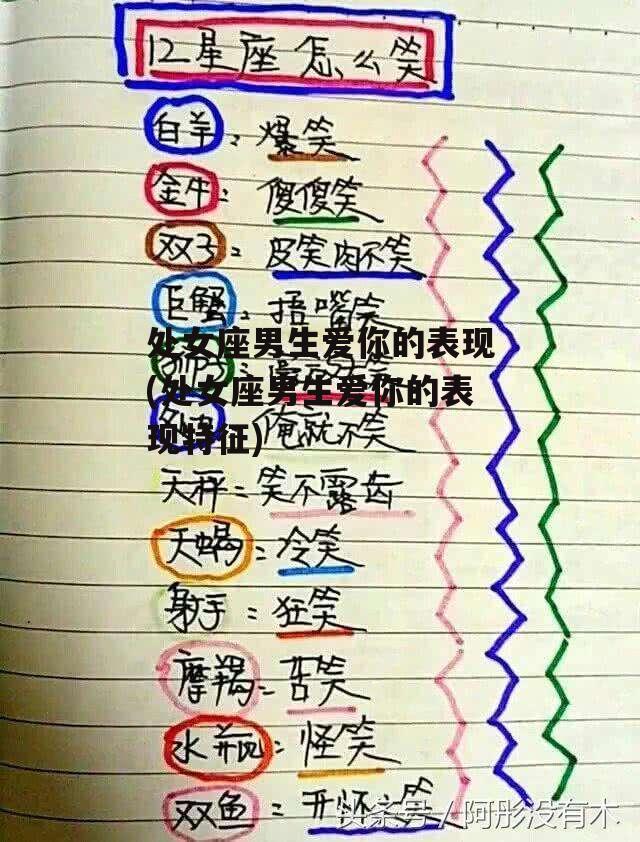 12星座怎么笑
白羊：爆笑
金牛：傻傻笑
双子：皮笑肉不笑
巨蟹：捂嘴笑
处女座男生爱你的表现
(处女座男生爱你的表
现特征)
俺就不笑
天秤：笑不露齿
天蝎：冷笑
射手：狂笑
摩羯：苦笑
水瓶：怪笑
双鱼：开怀大笑
头条号 / 阿彤没有木